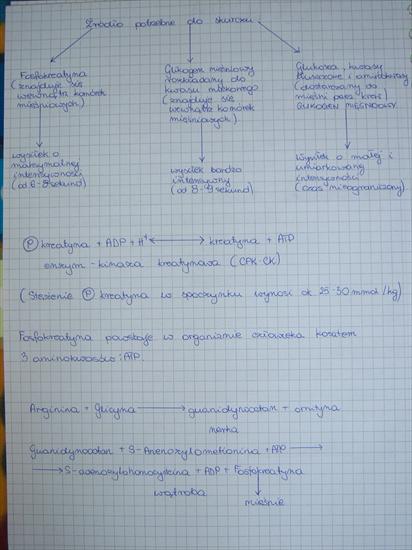 Źródło potrzebne do skurczu.
Fosfokreatyna
(znajduje się
wewnątrz komórek
mięśniowych)
Glikogen mięśniowy
rozkładany do
kwasu mlekowego
(znajduje się
wewnątrz komórek
mięśniowych)
Glukoza, kwasy
tłuszczowe i aminokwasy
(dostarczany do
mięśni przez krew)
GLIKOGEN MIĘŚNIOWY
wysiłek o
maksymalnej
intensywności
(od 6-8 sekund)
wysiłek bardzo
intensywny
(od 8-9 sekund)
Wysiłek o małej i
umiarkowanej
intensywności
(czas nieograniczony)
(P) kreatyna + ADP + H+ ⟷ kreatyna + ATP
enzym - kinaza kreatynowa (CPK-CK)
(Stężenie (P) kreatyna w spoczynku wynosi ok 25-30 mmol/kg)
Fosfokreatyna powstaje w organizmie człowieka kosztem
3 aminokwasów i ATP.
Arginina + Glicyna ⟶ guanidynooctan + ornityna
nerka
Guanidynooctan + S-Adenozylometionina + ATP ⟶
⟶ S-adenozylohomocysteina + ADP + Fosfokreatyna
wątroba
mięśnie